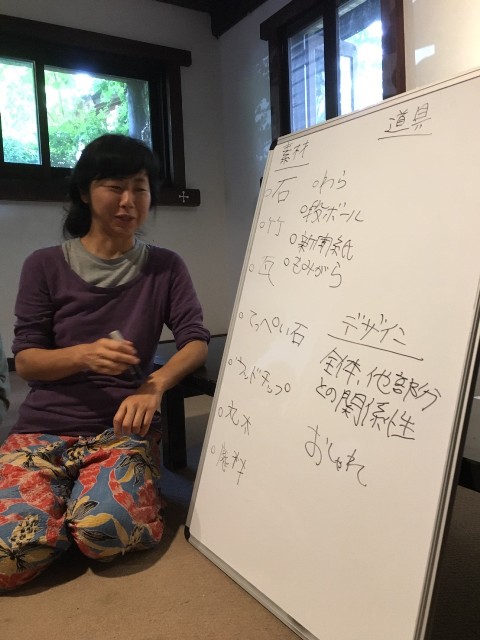 素材
○石
○竹
○瓦
○てっぺい石
○ウッドチップ
○丸木
○廃料
○わら
○段ボール
○新聞紙
○もみがら
道具
デザイン
全体、他部分
との関係性
おしゃれ